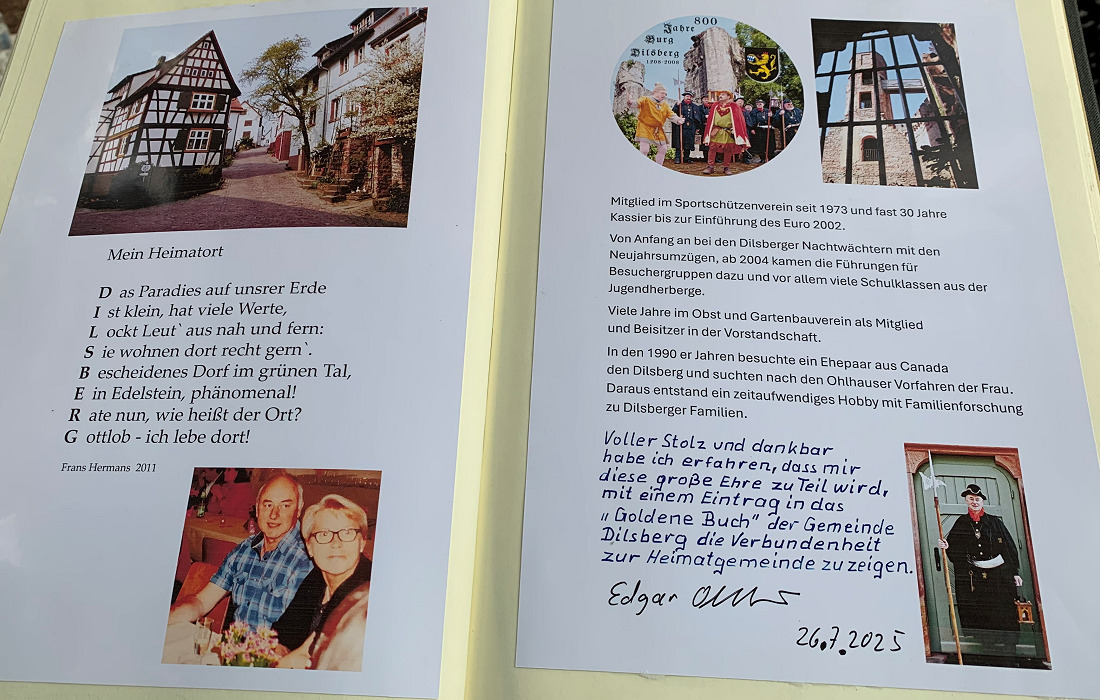 Mein Heimatort
D as Paradies auf unsrer Erde
I st klein, hat viele Werte,
L ockt Leut` aus nah und fern:
S ie wohnen dort recht gern`.
B escheidenes Dorf im grünen Tal,
E in Edelstein, phänomenal!
R ate nun, wie heißt der Ort?
G ottlob - ich lebe dort!
Frans Hermans 2011
800
Jahre
Burg
Dilsberg
1208-2008
Mitglied im Sportschützenverein seit 1973 und fast 30 Jahre
Kassier bis zur Einführung des Euro 2002.
Von Anfang an bei den Dilsberger Nachtwächtern mit den
Neujahrsumzügen, ab 2004 kamen die Führungen für
Besuchergruppen dazu und vor allem viele Schulklassen aus der
Jugendherberge.
Viele Jahre im Obst und Gartenbauverein als Mitglied
und Beisitzer in der Vorstandschaft.
In den 1990 er Jahren besuchte ein Ehepaar aus Canada
den Dilsberg und suchten nach den Ohlhauser Vorfahren der Frau.
Daraus entstand ein zeitaufwendiges Hobby mit Familienforschung
zu Dilsberger Familien.
Voller Stolz und dankbar
habe ich erfahren, dass mir
diese große Ehre zu Teil wird,
mit einem Eintrag in das
„Goldene Buch" der Gemeinde
Dilsberg die Verbundenheit
zur Heimatgemeinde zu zeigen.
Edgar
26.7.2025